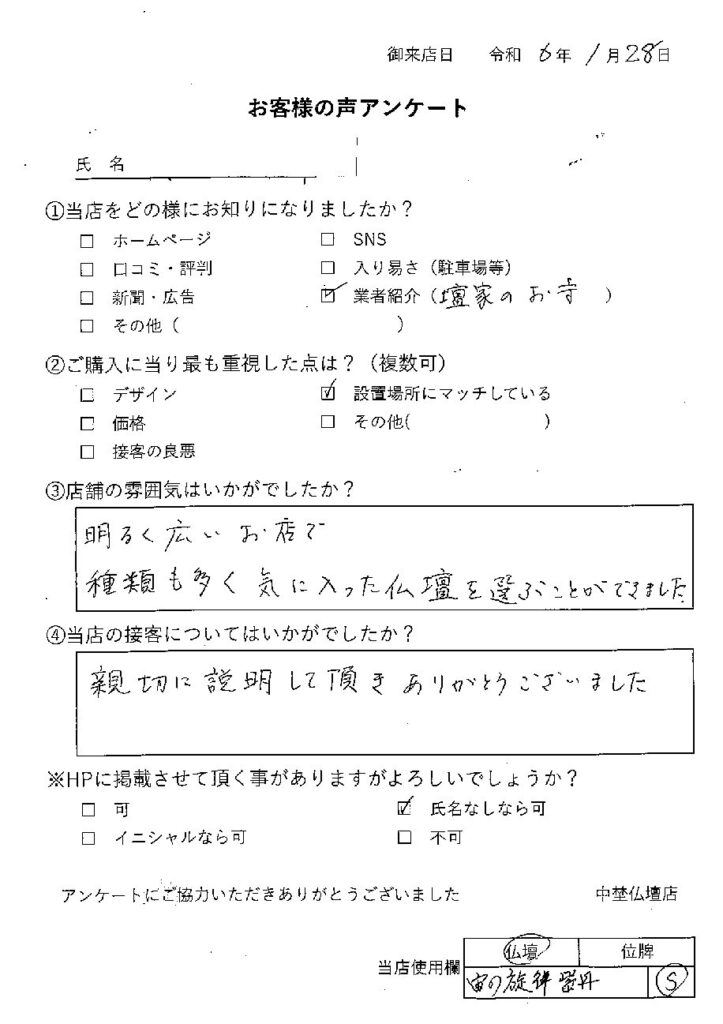 御来店日 令和 6年 1月28日
お客様の声アンケート
氏 名
①当店をどの様にお知りになりましたか？
□ ホームページ □ SNS
□ 口コミ・評判 □ 入り易さ（駐車場等）
□ 新聞・広告 ☑ 業者紹介（壇家のお寺 ）
□ その他（ ）
②ご購入に当り最も重視した点は？（複数可）
□ デザイン ☑ 設置場所にマッチしている
□ 価格 □ その他( )
□ 接客の良悪
③店舗の雰囲気はいかがでしたか？
明るく広いお店で
種類も多く気に入った仏壇を選ぶことができました
④当店の接客についてはいかがでしたか？
親切に説明して頂きありがとうございました
※HPに掲載させて頂く事がありますがよろしいでしょうか？
□ 可 ☑ 氏名なしなら可
□ イニシャルなら可 □ 不可
アンケートにご協力いただきありがとうございました 中埜仏壇店
当店使用欄 仏壇 位牌
宙の旋律 紫丹 S